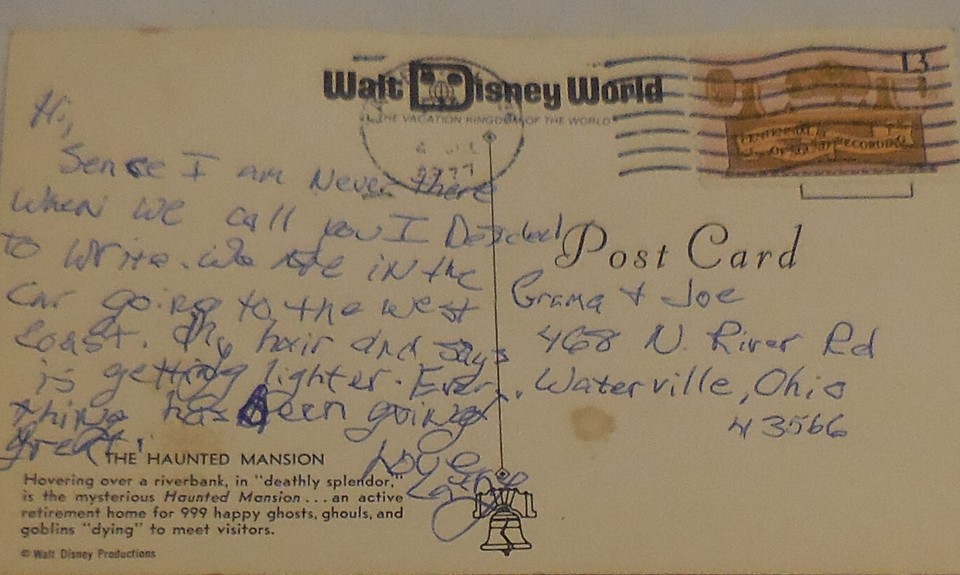 Walt Disney World
THE VACATION KINGDOM OF THE WORLD
1977
13
CENTENNIAL
OF SOUND RECORDING
Post Card
Hi,
Sense I am Never there
When we call you I Decided
to Write. We are in the
car going to the west
coast. My hair and says
is getting lighter. Every
thing has been going
great.
Love
Grama + Joe
468 N. River Rd
Waterville, Ohio
43566
THE HAUNTED MANSION
Hovering over a riverbank, in "deathly splendor,"
is the mysterious Haunted Mansion ... an active
retirement home for 999 happy ghosts, ghouls, and
goblins "dying" to meet visitors.
© Walt Disney Productions